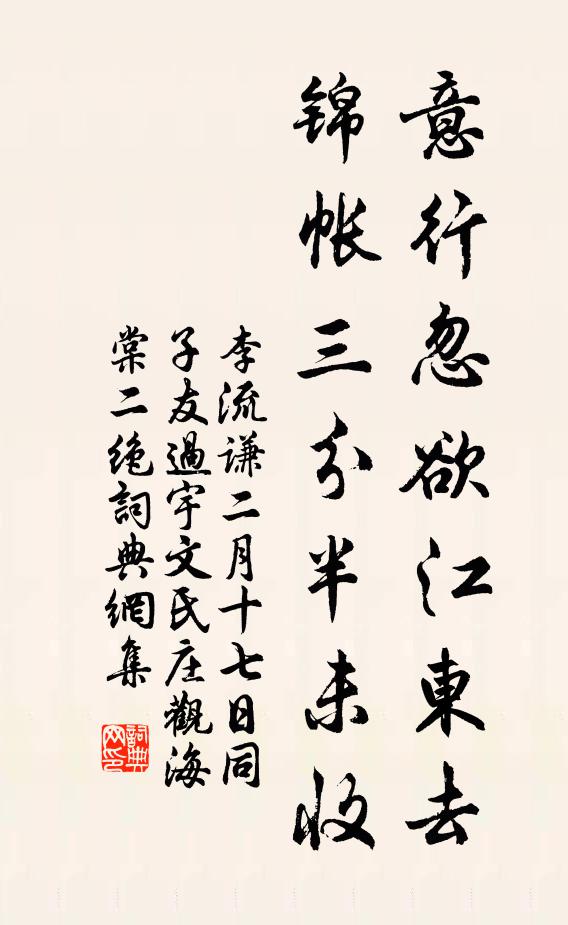 意行忽欲江東去
錦帳三分半未收
李流謙二月十七日同
子友過宇文氏庄觀海
棠二绝詞典網集
詞典
网印